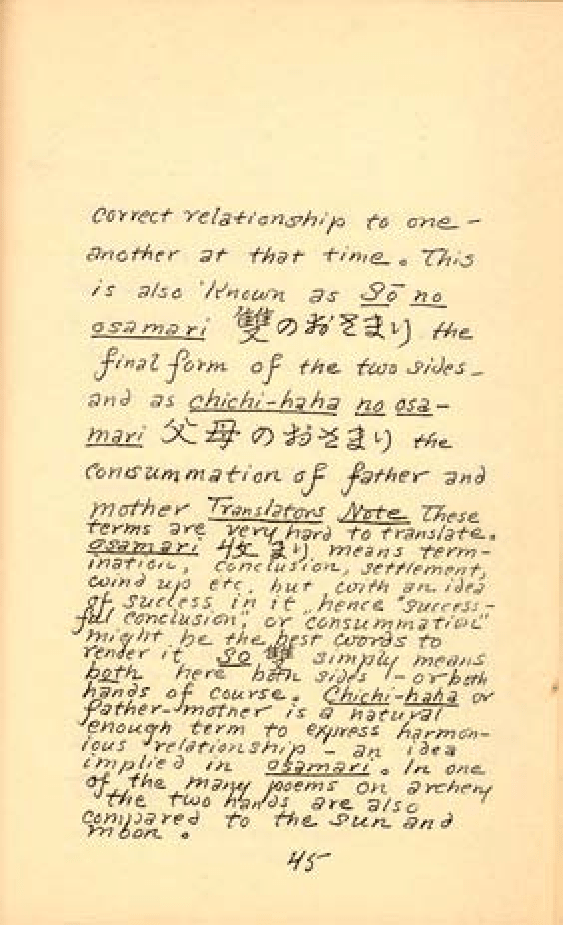 correct relationship to one-
another at that time. This
is also known as Sō no
osamari 雙のおさまり the
final form of the two sides-
and as chichi-haha no osa-
mari 父母のおさまり the
consummation of father and
mother Translators Note These
terms are very hard to translate.
osamari まり, means term-
ination, conclusion, settlement,
wind up etc. but with an idea
of success in it, hence "success-
ful conclusion", or consummation"
might be the best words to
render it So 雙 simply means
both here both sides - or both
hands of course. Chichi-haha or
father-mother is a natural
enough term to express harmon-
ious relationship - an idea
implied in osamari. In one
of the many poems on archery
the two hands are also
compared to the sun and
moon.
45